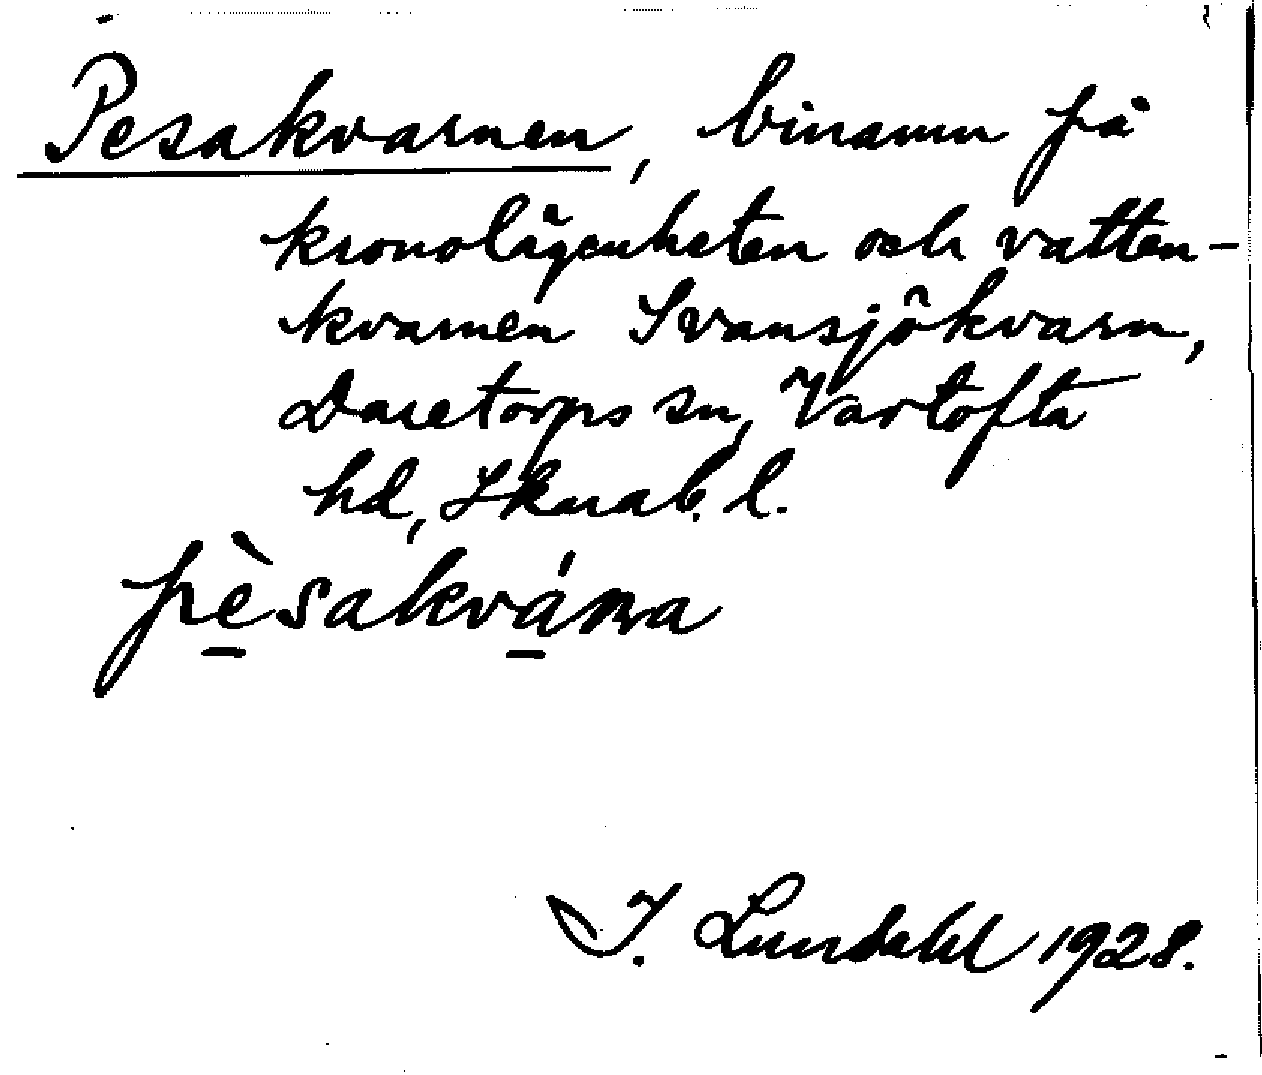 Pesakvarnen, binamn på
kronolägenheten och vatten-
kvarnen Svansjökvarn,
Daretorps sn, Vartofta
hd, Skarab. l.
pèsakvárna
I. Lundahl 1928.